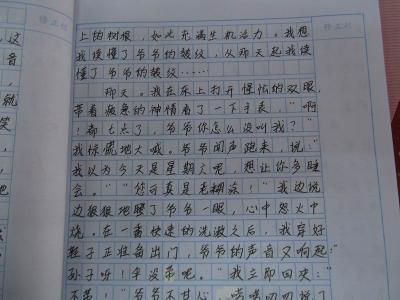 修正栏
上的树根，如此充满生机活力。我想
我读懂了爷爷的皱纹，从那天起我读
懂了爷爷的皱纹……
那天。我在床上打开惺忪的双眼，
带着疲惫的神情看了一下手表，“啊
！都七点了，爷爷你怎么没叫我？”
我惊慌地大喊。爷爷闻声跑来，说：“
我以为今天是星期六呢，想让你多睡
会。”“您可真是老糊涂！”我边说
边狠狠地瞪了爷爷一眼，心中怒火中
烧。在一番快速的洗漱之后，我穿好
鞋子正准备出门，爷爷的声音又响起：“
孙子呀！伞没带呢。”我立即回头：“
不带！”爷爷不甘心，唠唠叨叨说了
这
音
就
笑
修正栏